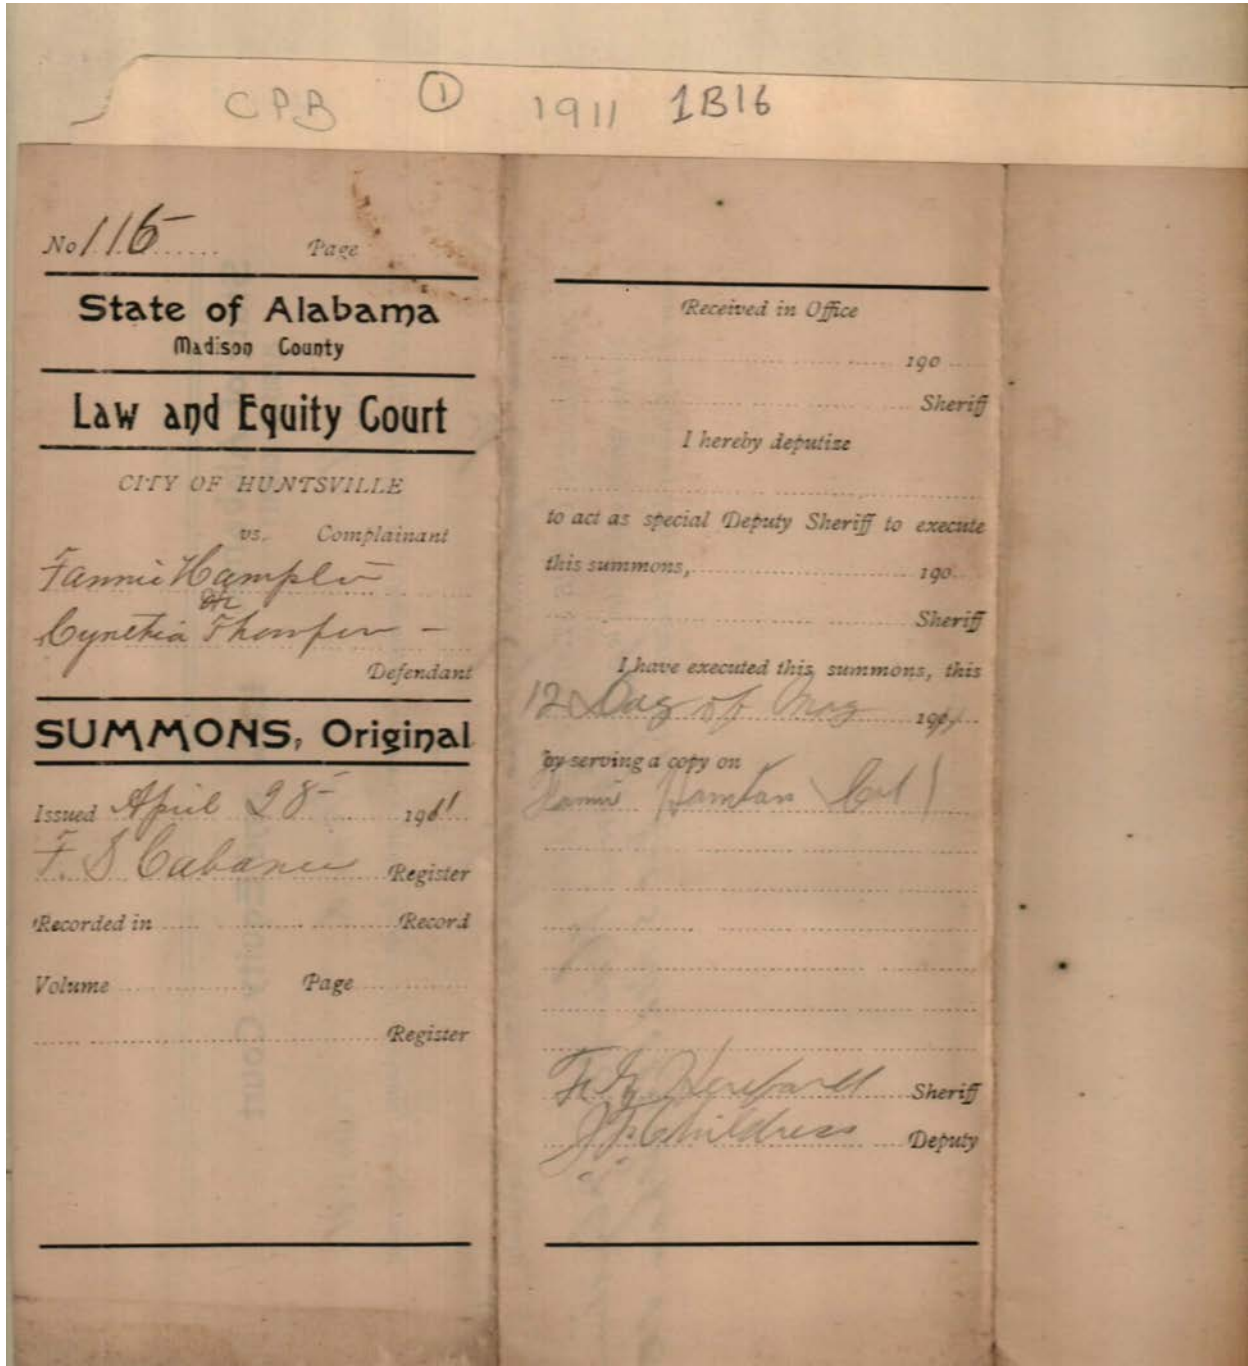 CPB ① 1911 1B16
No 115 Page
State of Alabama
Madison County
Law and Equity Court
CITY OF HUNTSVILLE
vs. Complainant
Fannie
or
Cynthia
Defendant
SUMMONS, Original
Issued April 28 1911
F. S. Register
Recorded in Record
Volume Page
Register
Received in Office
190
Sheriff
I hereby deputize
to act as special Deputy Sheriff to execute
this summons, 190
Sheriff
I have executed this summons, this
12 Day of May 1911
by serving a copy on
Sheriff
J. F. Childress Deputy